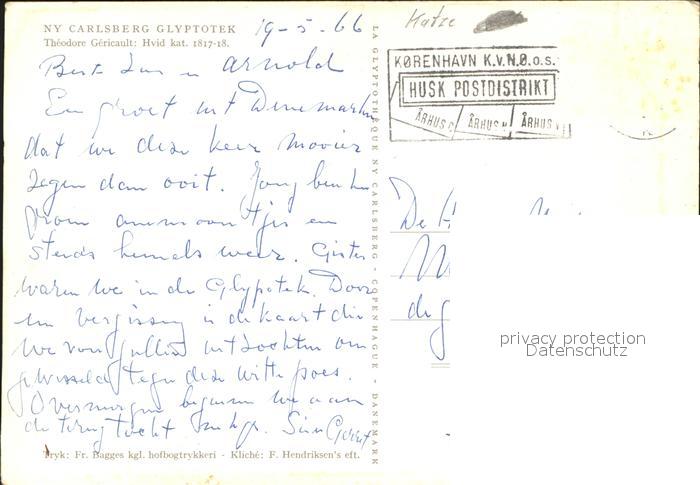 NY CARLSBERG GLYPTOTEK
Théodore Géricault: Hvid kat. 1817-18.
19-5-66
Katze
KØBENHAVN K.V.N.Ø.o.s.
HUSK POSTDISTRIKT
ÅRHUS C ÅRHUS N ÅRHUS V
Arnold
Een groet uit Denemarken
dat we deze keer mooier
zien dan ooit. Jong
en
steeds hemels weer. Gister
waren we in de Glyptotek. Door
een vergissing is de kaart die
we voor jullie uitzochten om
gewisseld tegen deze witte poes.
Overmorgen beginnen we aan
de terugtocht
LA GLYPTOTHÈQUE NY CARLSBERG - COPENHAGUE - DANEMARK
De
privacy protection
Datenschutz
Tryk: Fr. Bagges kgl. hofbogtrykkeri - Kliché: F. Hendriksen's eft.